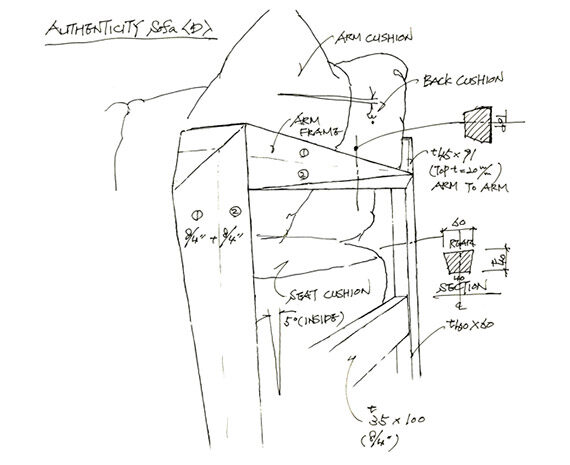 AUTHENTICITY Sofa <D>
ARM CUSHION
BACK CUSHION
ARM
FRAME
①
②
t45 × 91
(Top t=20m/m)
ARM TO ARM
① ②
8/4" + 8/4"
60
REAR
t60
40
SECTION
SEAT CUSHION
5° (INSIDE)
t60×60
t
35 × 100
(8/4")